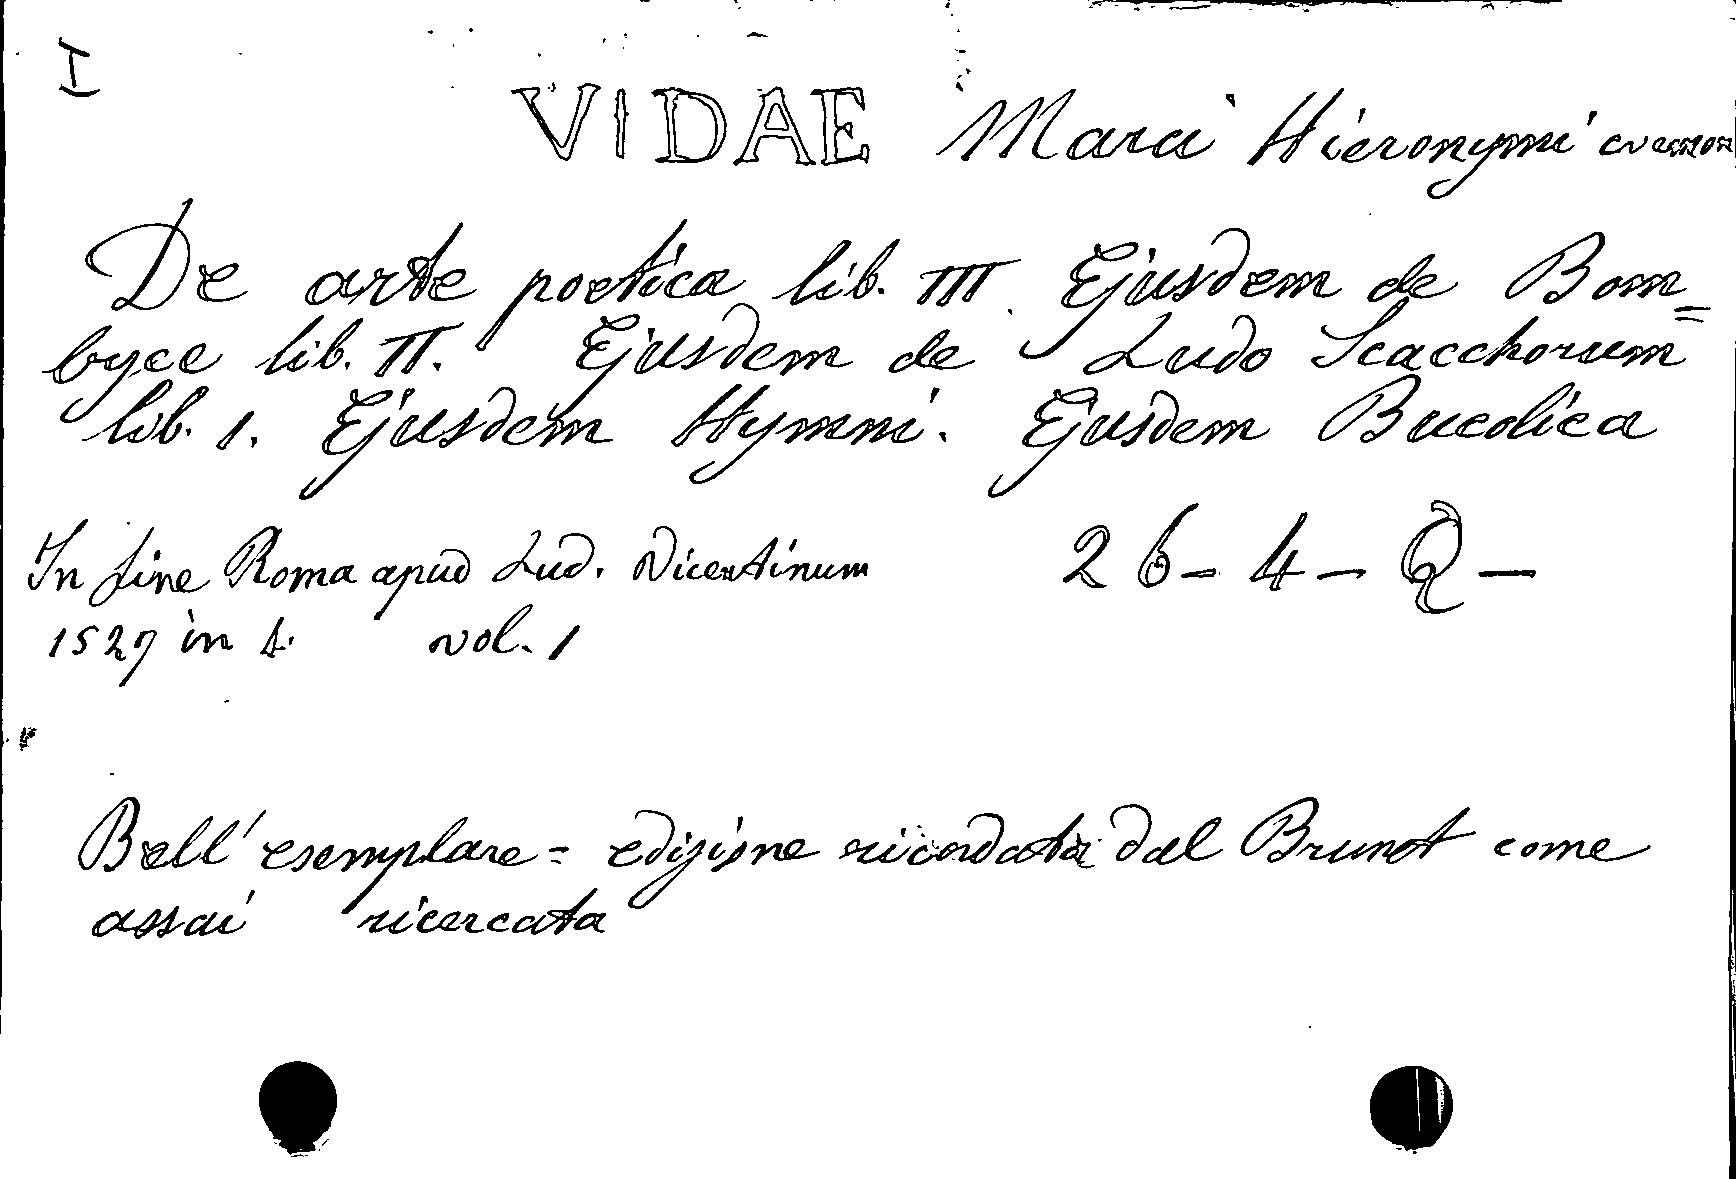 I
VIDAE Marci Hieronymi cremon
De arte poetica lib. III. Ejusdem de Bom=
byce lib. II. Ejusdem de Ludo Scacchorum
lib. 1. Ejusdem Hymni. Ejusdem Bucolica
In fine Roma apud Lud. Vicentinum
26-4-Q-
1527 in 4. vol. 1
Bell' esemplare = edizione ricordata dal Brunot come
assai ricercata